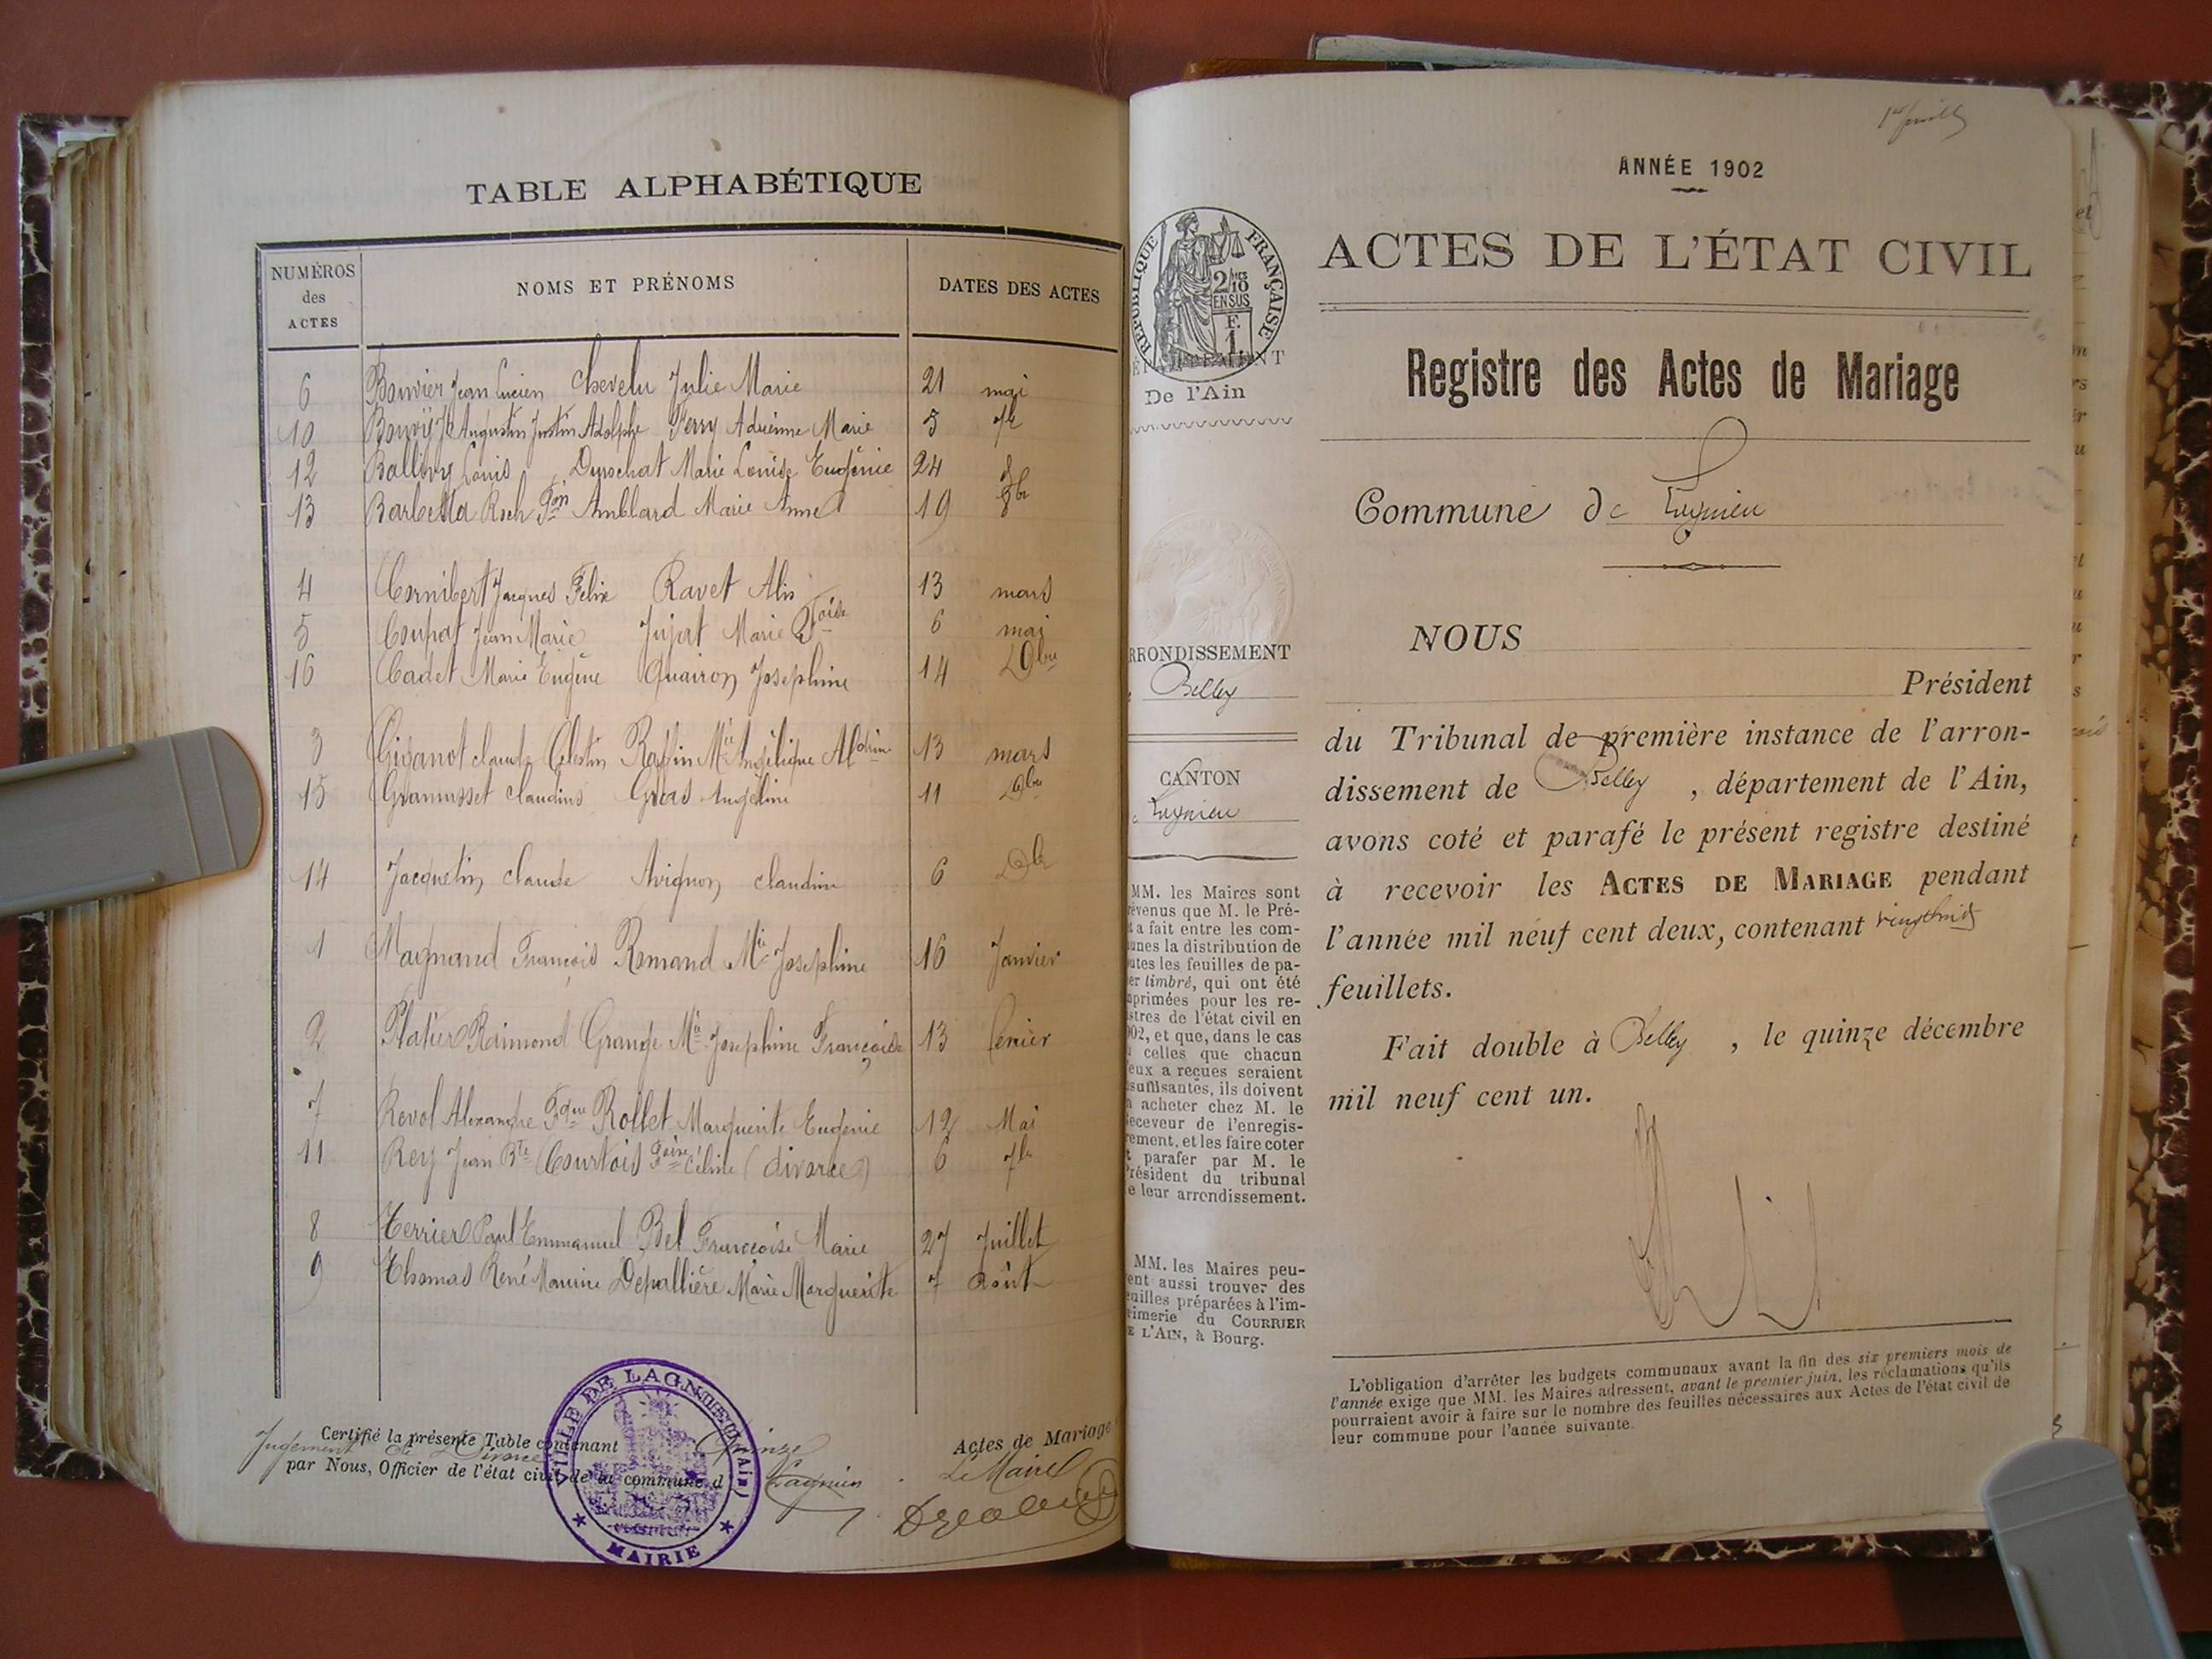 TABLE ALPHABÉTIQUE
NUMÉROS des ACTES NOMS ET PRÉNOMS DATES DES ACTES
6 Bouvier Jean Lucien Chevelu Julie Marie 21 mai
10 Augustin Justin Adolphe Ferry Adrienne Marie 5 7bre
12 Ballivy Louis Durochat Marie Louise Eugénie 24
13 Barbetta Roch Amblard Marie Anne 19 8bre
4 Cornibert Jacques Felix Ravet Alis 13 mars
5 Coupat Jean Marie Jujat Marie Foise 6 mai
16 Cadet Marie Eugène Quairon Josephine 14 Xbre
3 Giganot claude Célestin Raffin Mie Angélique 13 mars
15 Grumusset claudius Gréas Angéline 11
14 Jacquelin claude Avignon claudine 6
1 Magnand François Romand Mie Josephine 16 Janvier
2 Platier Raimond Grange Mie Josephine Françoise 13 fevrier
7 Revol Alexandre Rollet Marguerite Eugénie 12 Mai
11 Rey Jean Bte Courtois Foise Céline (divorce) 6 7bre
8 Terrier Paul Emmanuel Bel Françoise Marie 27 Juillet
9 Thomas René Maurice Depallière Marie Marguerite 7 Août
Certifié la présente Table contenant quinze Actes de Mariage
Jugement de Divorce
par Nous, Officier de l'état civil de la commune d Lagnieu
Le Maire
VILLE DE LAGNIEU (Ain)
MAIRIE
1er feuillet
ANNÉE 1902
ACTES DE L'ÉTAT CIVIL
Registre des Actes de Mariage
Commune de Lagnieu
NOUS
Président
du Tribunal de première instance de l'arron-
dissement de Belley, département de l'Ain,
avons coté et parafé le présent registre destiné
à recevoir les ACTES DE MARIAGE pendant
l'année mil neuf cent deux, contenant vingt huit
feuillets.
Fait double à Belley, le quinze décembre
mil neuf cent un.
L'obligation d'arrêter les budgets communaux avant la fin des six premiers mois de
l'année exige que MM. les Maires adressent, avant le premier juin, les réclamations qu'ils
pourraient avoir à faire sur le nombre des feuilles nécessaires aux Actes de l'état civil de
leur commune pour l'année suivante.
RÉPUBLIQUE FRANÇAISE
2/10 EN SUS
F. 1.
De l'Ain
RRONDISSEMENT
Belley
CANTON
Lagnieu
MM. les Maires sont
évenus que M. le Pré-
t a fait entre les com-
unes la distribution de
utes les feuilles de pa-
er timbré, qui ont été
primées pour les re-
stres de l'état civil en
02, et que, dans le cas
celles que chacun
eux a reçues seraient
suffisantes, ils doivent
acheter chez M. le
eceveur de l'enregis-
rement, et les faire coter
t parafer par M. le
résident du tribunal
e leur arrondissement.
MM. les Maires peu-
ent aussi trouver des
euilles préparées à l'im-
rimerie du COURRIER
E L'AIN, à Bourg.